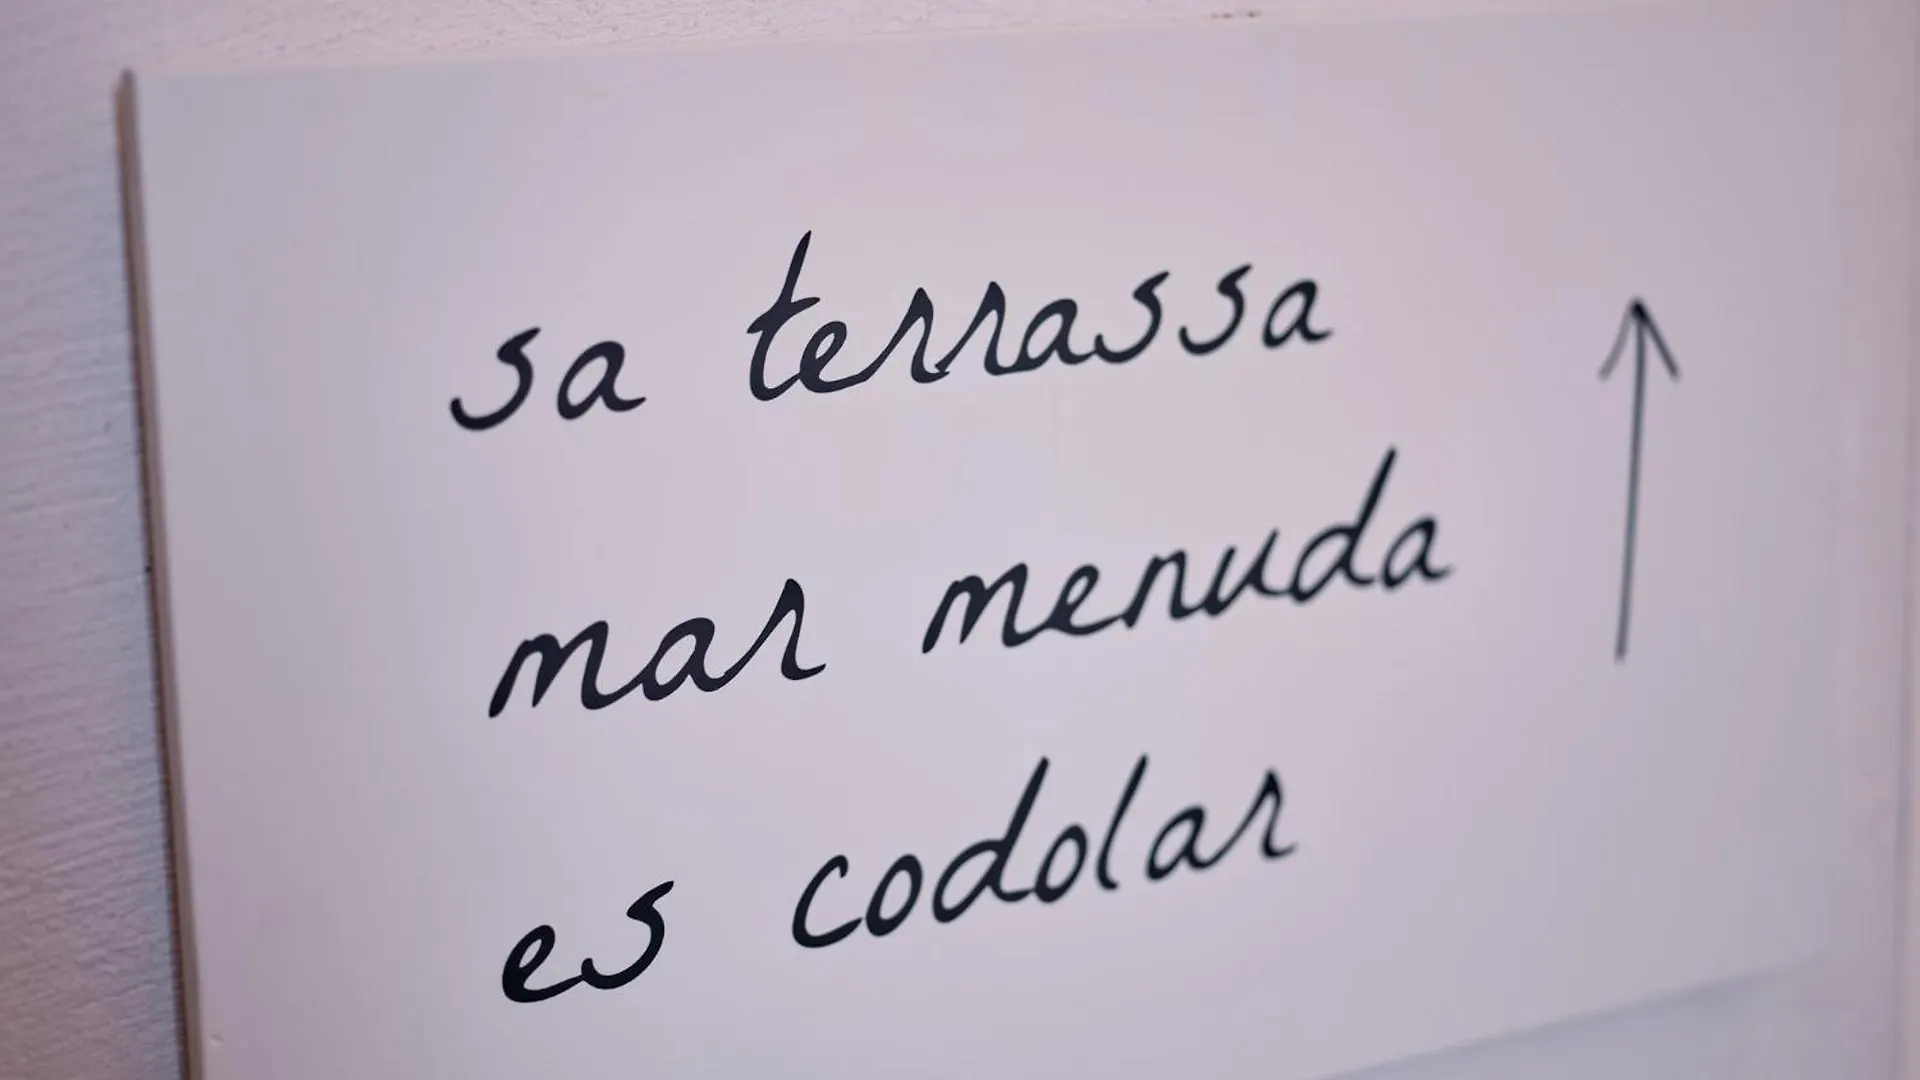 sa terrassa
mar menuda
es codolar